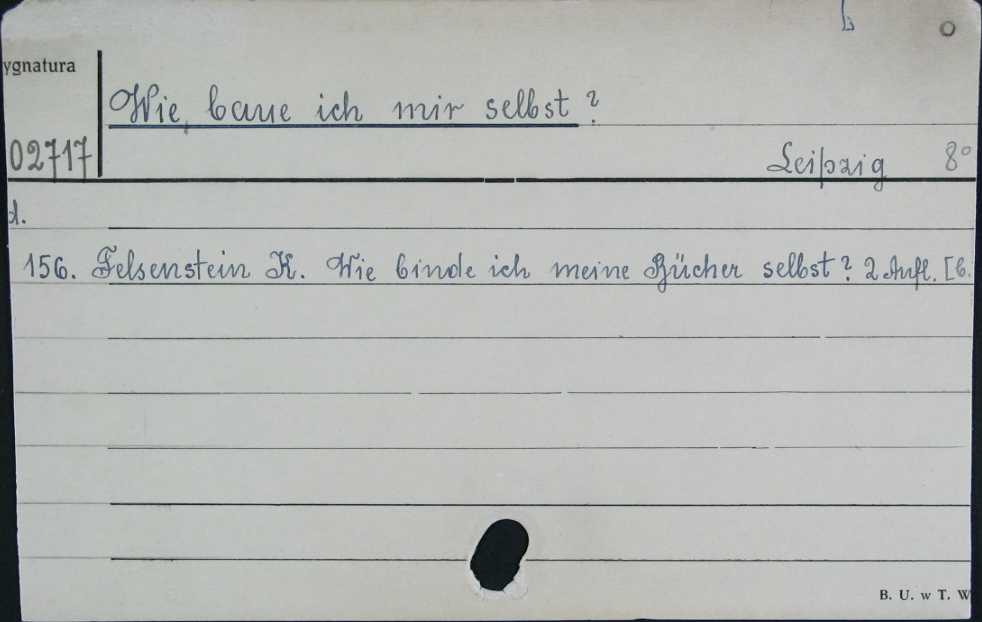 ygnatura
Wie baue ich mir selbst?
02717
Leipzig 8°
d.
156. Felsenstein K. Wie binde ich meine Bücher selbst? 2 Aufl. [b.
B. U. w T. W